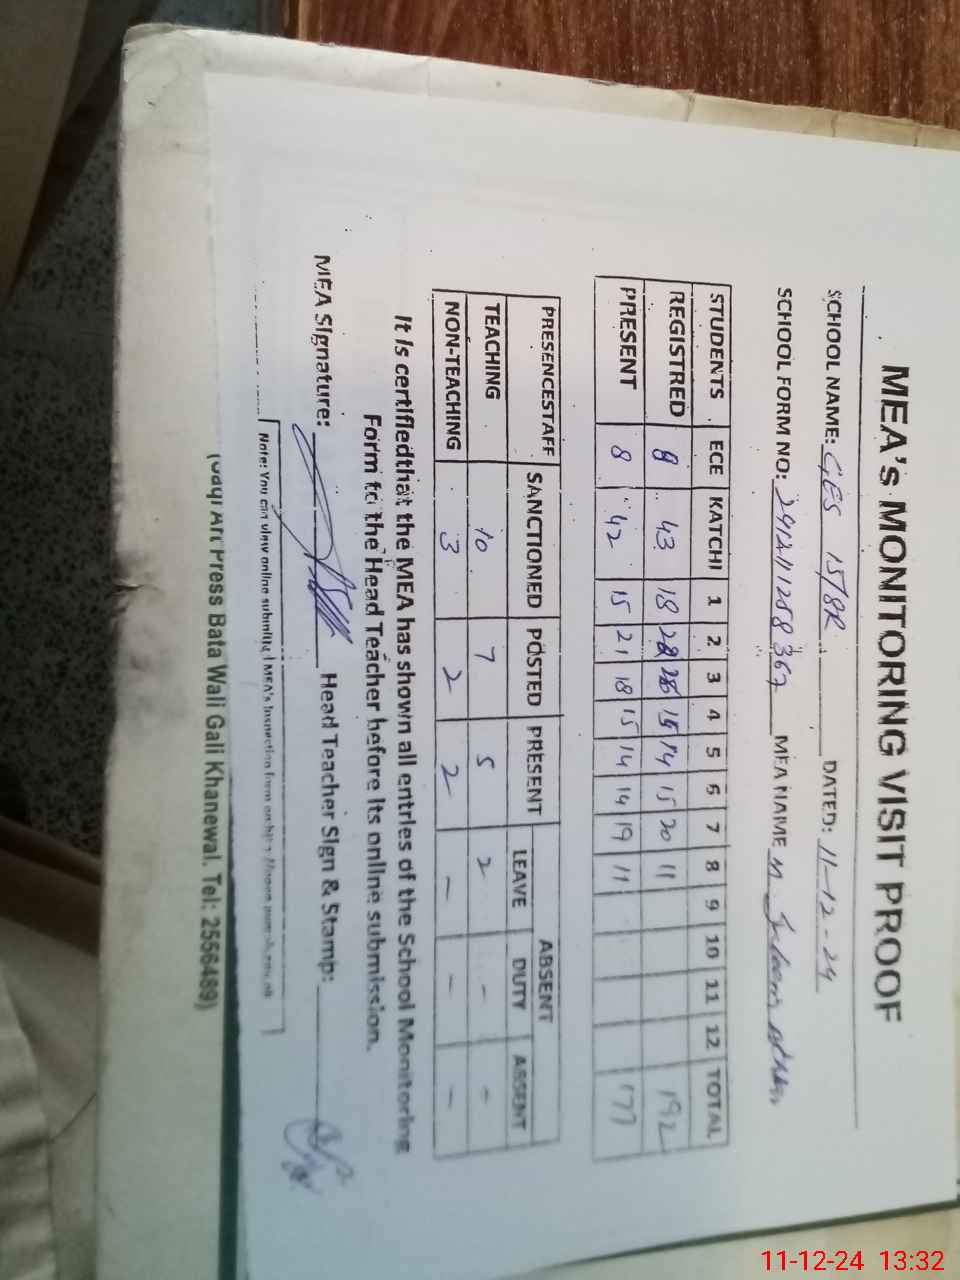 MEA's MONITORING VISIT PROOF
SCHOOL NAME: GES 15/8R DATED: 11-12-24
SCHOOL FORM NO: MEA NAME M
STUDENTS ECE KATCHI 1 2 3 4 5 6 7 8 9 10 11 12 TOTAL
REGISTRED 8 43 18 28 15 14 15 20 11 192
PRESENT 8 42 15 21 18 15 14 14 19 11 177
PRESENCESTAFF SANCTIONED POSTED PRESENT ABSENT
LEAVE DUTY ABSENT
TEACHING 10 7 5 2 - -
NON-TEACHING 3 2 2 - - -
It is certifiedthat the MEA has shown all entries of the School Monitoring
Form to the Head Teacher before its online submission.
MEA Signature: Head Teacher Sign & Stamp:
Note: You can view online submitted MEA's Inspection form on
Art Press Bata Wali Gali Khanewal. Tel: 2556489)
11-12-24 13:32